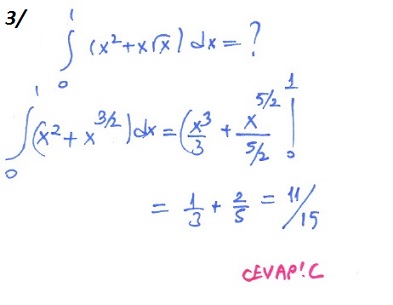 3/
∫₀¹ (x² + x√x) dx = ?
∫₀¹ (x² + x^{3/2}) dx = (x³/3 + x^{5/2}/5/2 |₀¹
= 1/3 + 2/5 = 11/15
CEVAP! C